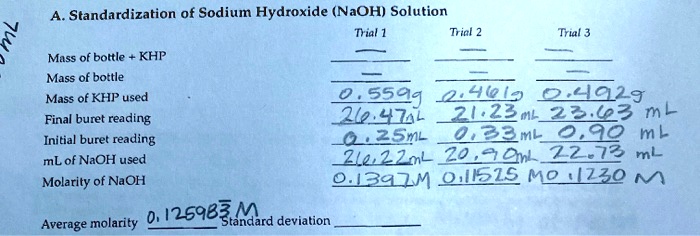 A. Standardization of Sodium Hydroxide (NaOH) Solution
Trial 1 Trial 2 Trial 3
Mass of bottle + KHP — — —
Mass of bottle — — —
Mass of KHP used 0.559g 0.461g 0.492g
Final buret reading 26.47mL 21.23 mL 23.63 mL
Initial buret reading 0.25mL 0.33mL 0.90 mL
mL of NaOH used 26.22mL 20.90mL 22.73 mL
Molarity of NaOH 0.1392M 0.11525 M 0.11230 M
Average molarity 0.125983̅ M Standard deviation